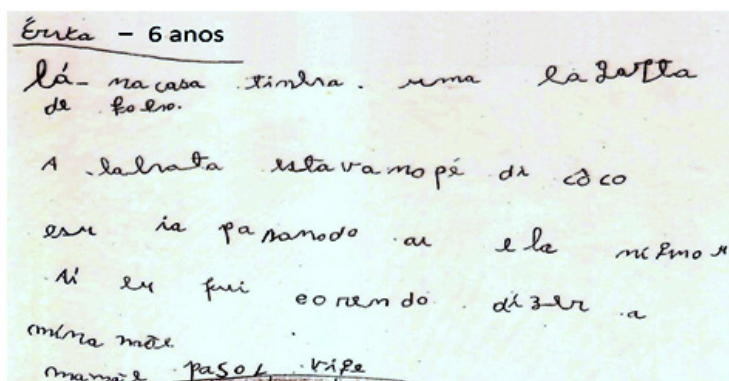 Érika – 6 anos
lá na casa tinha. uma lagarta
de fogo.
A labrata estava nopé di côco
esu ia pasanodo ai ela mi
Ai eu fui corendo dizer a
minha mãe
mamãe pasol